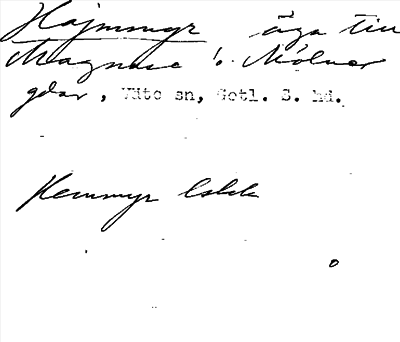 Hajmmyr äga till
Magnuse i. Mölner
gdar, Väte sn, Gotl. S. hd.
Hemmyr